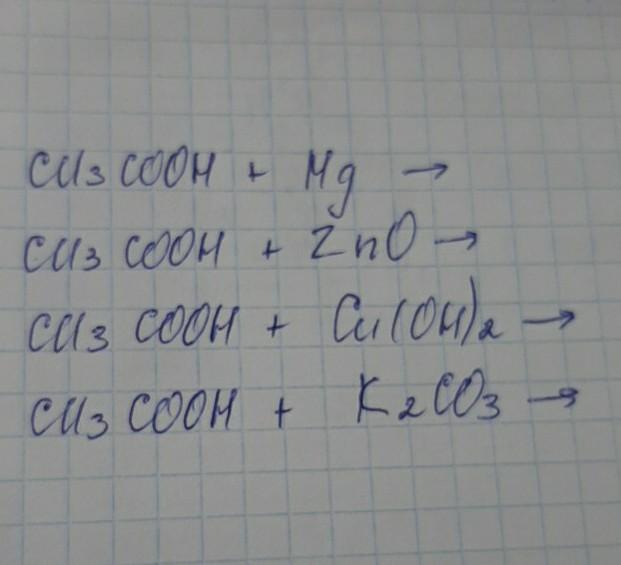 CH3 COOH + Mg →
CH3 COOH + ZnO →
CH3 COOH + Cu(OH)2 →
CH3 COOH + K2CO3 →